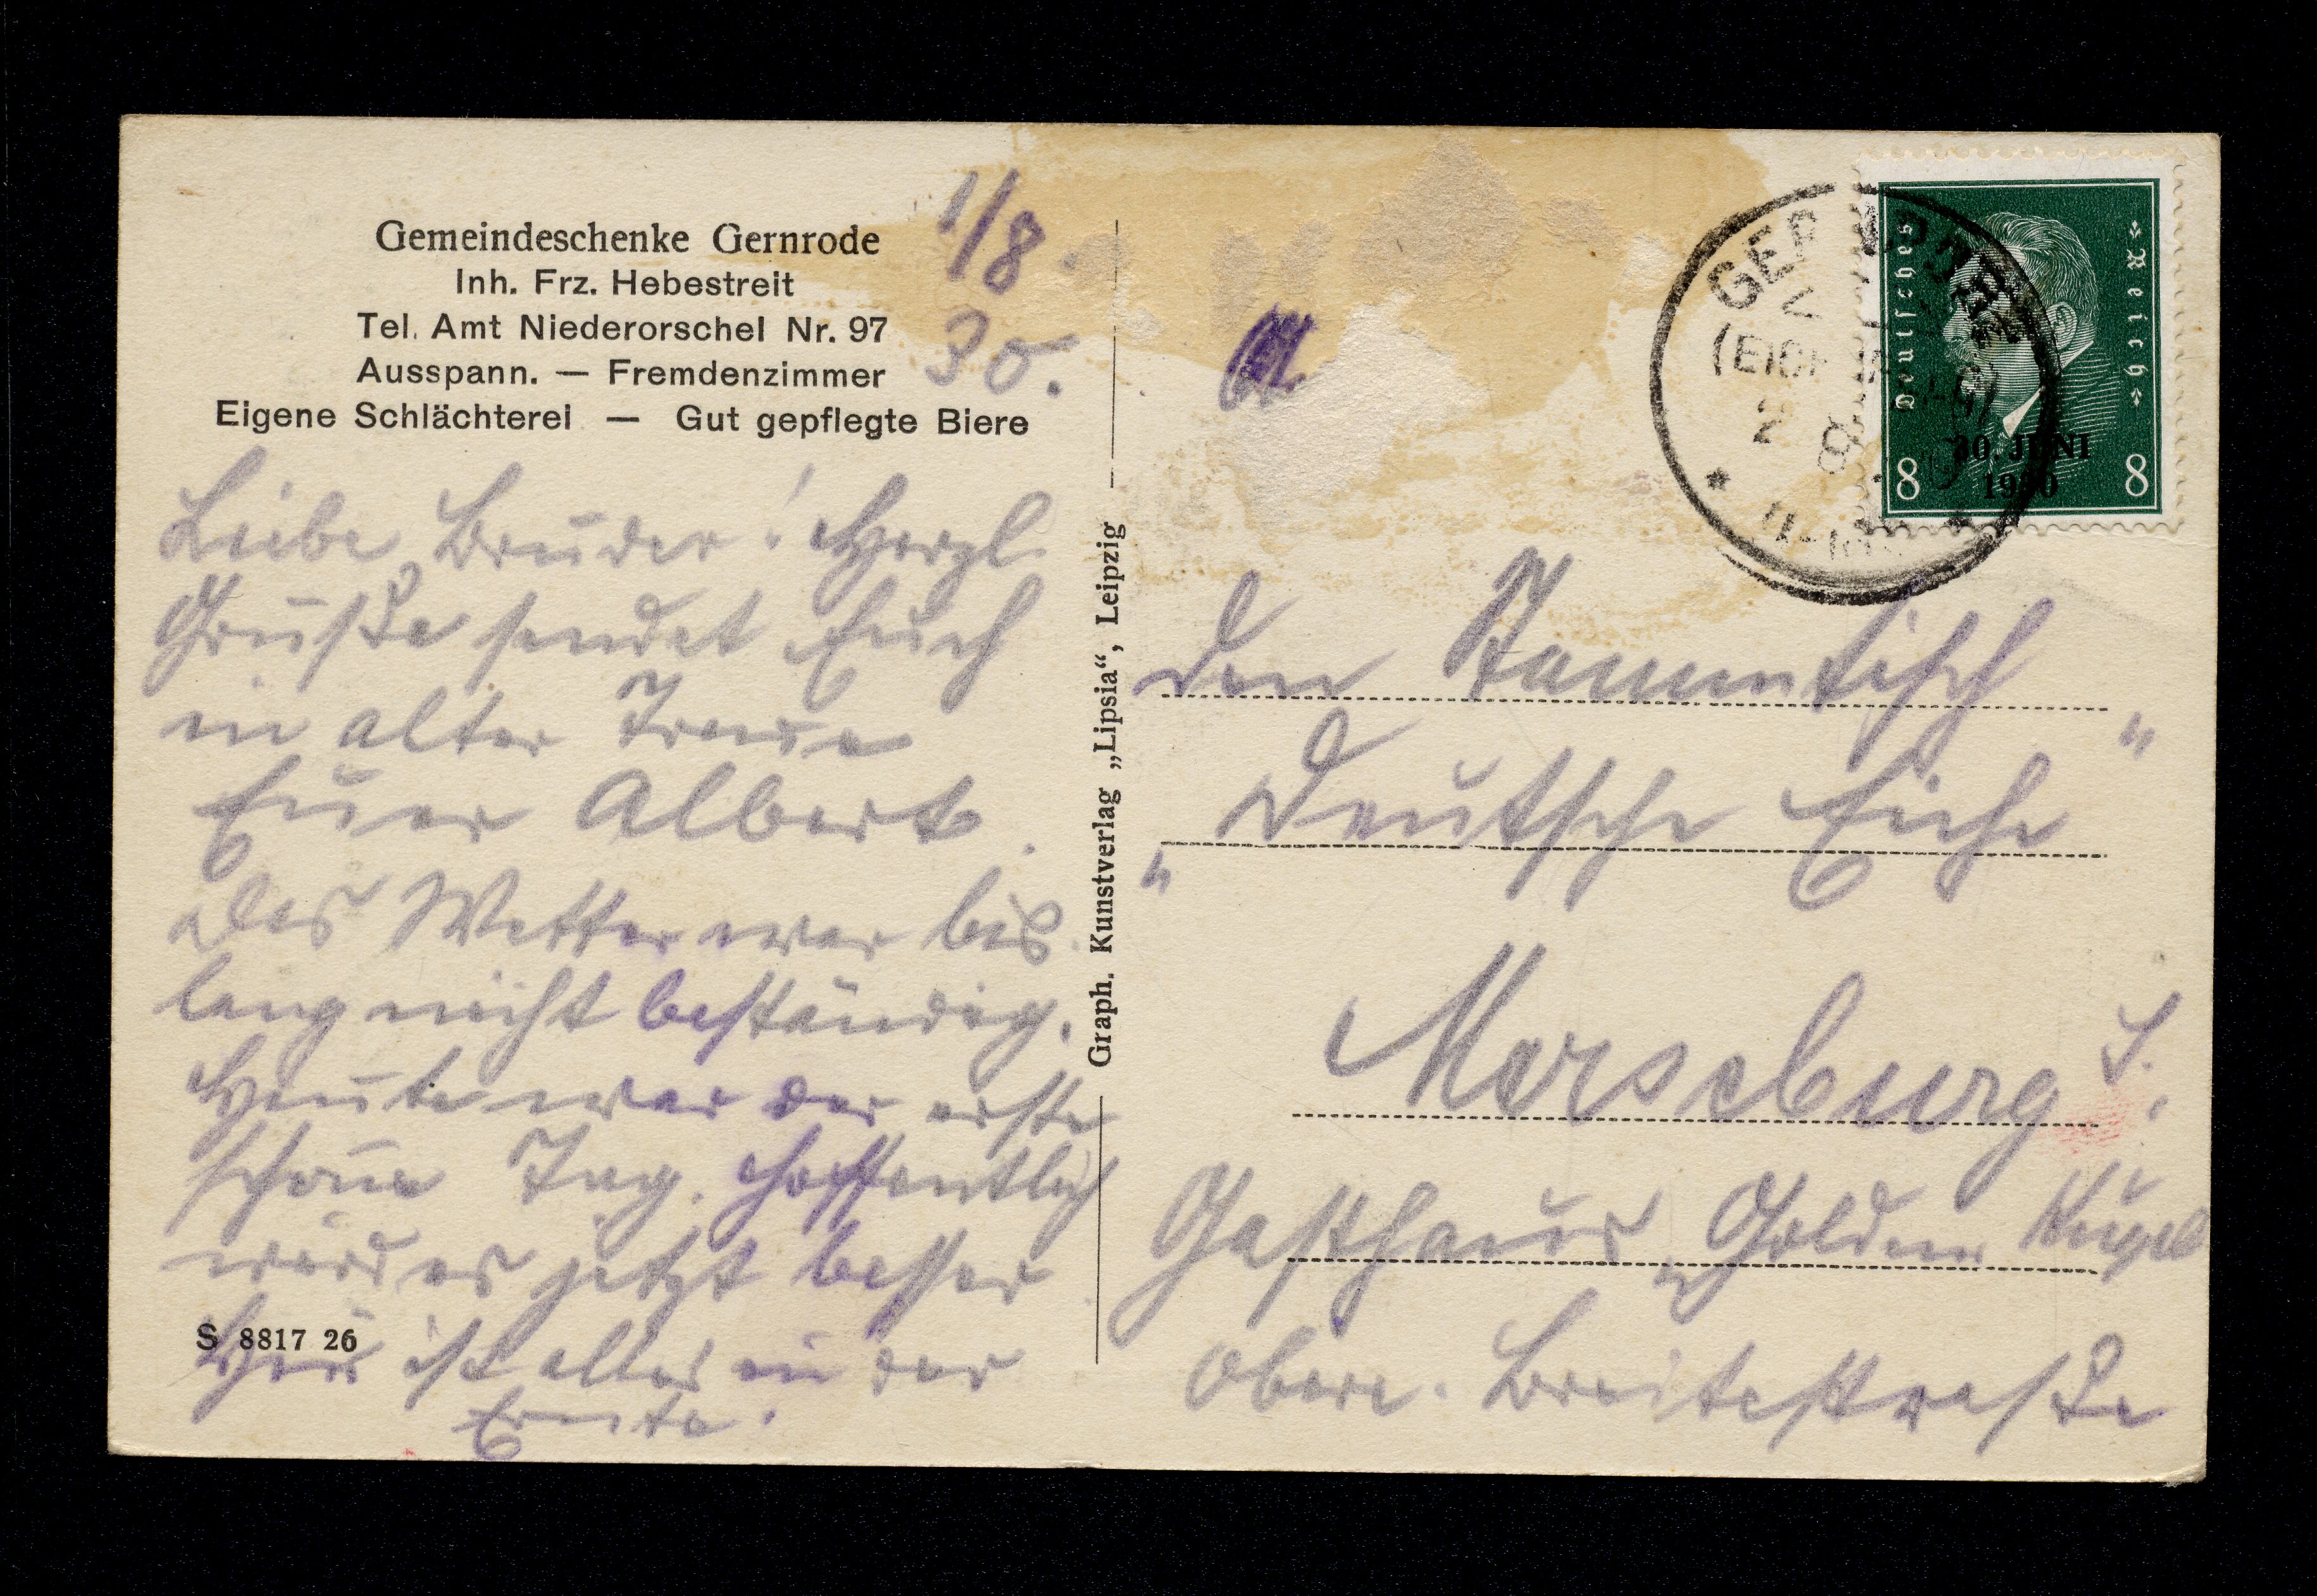 Gemeindeschenke Gernrode
Inh. Frz. Hebestreit
Tel. Amt Niederorschel Nr. 97
Ausspann. — Fremdenzimmer
Eigene Schlächterei — Gut gepflegte Biere
1/8.
30.
Liebe Brüder! Herzl.
Grüße sendet Euch
in alter Treue
Euer Albert.
Das Wetter war bis
lang nicht beständig.
Heute war der erste
schöne Tag. Hoffentlich
wird es jetzt besser
S 8817 26
Hier ist alles in der
Ernte.
Graph. Kunstverlag „Lipsia“, Leipzig
Deutsches Reich
30. JUNI
1930
8 8
Den Stammtisch
"Deutsche Eiche"
Merseburg S.
Gasthaus Goldne Kugel
Obere. Breitestraße